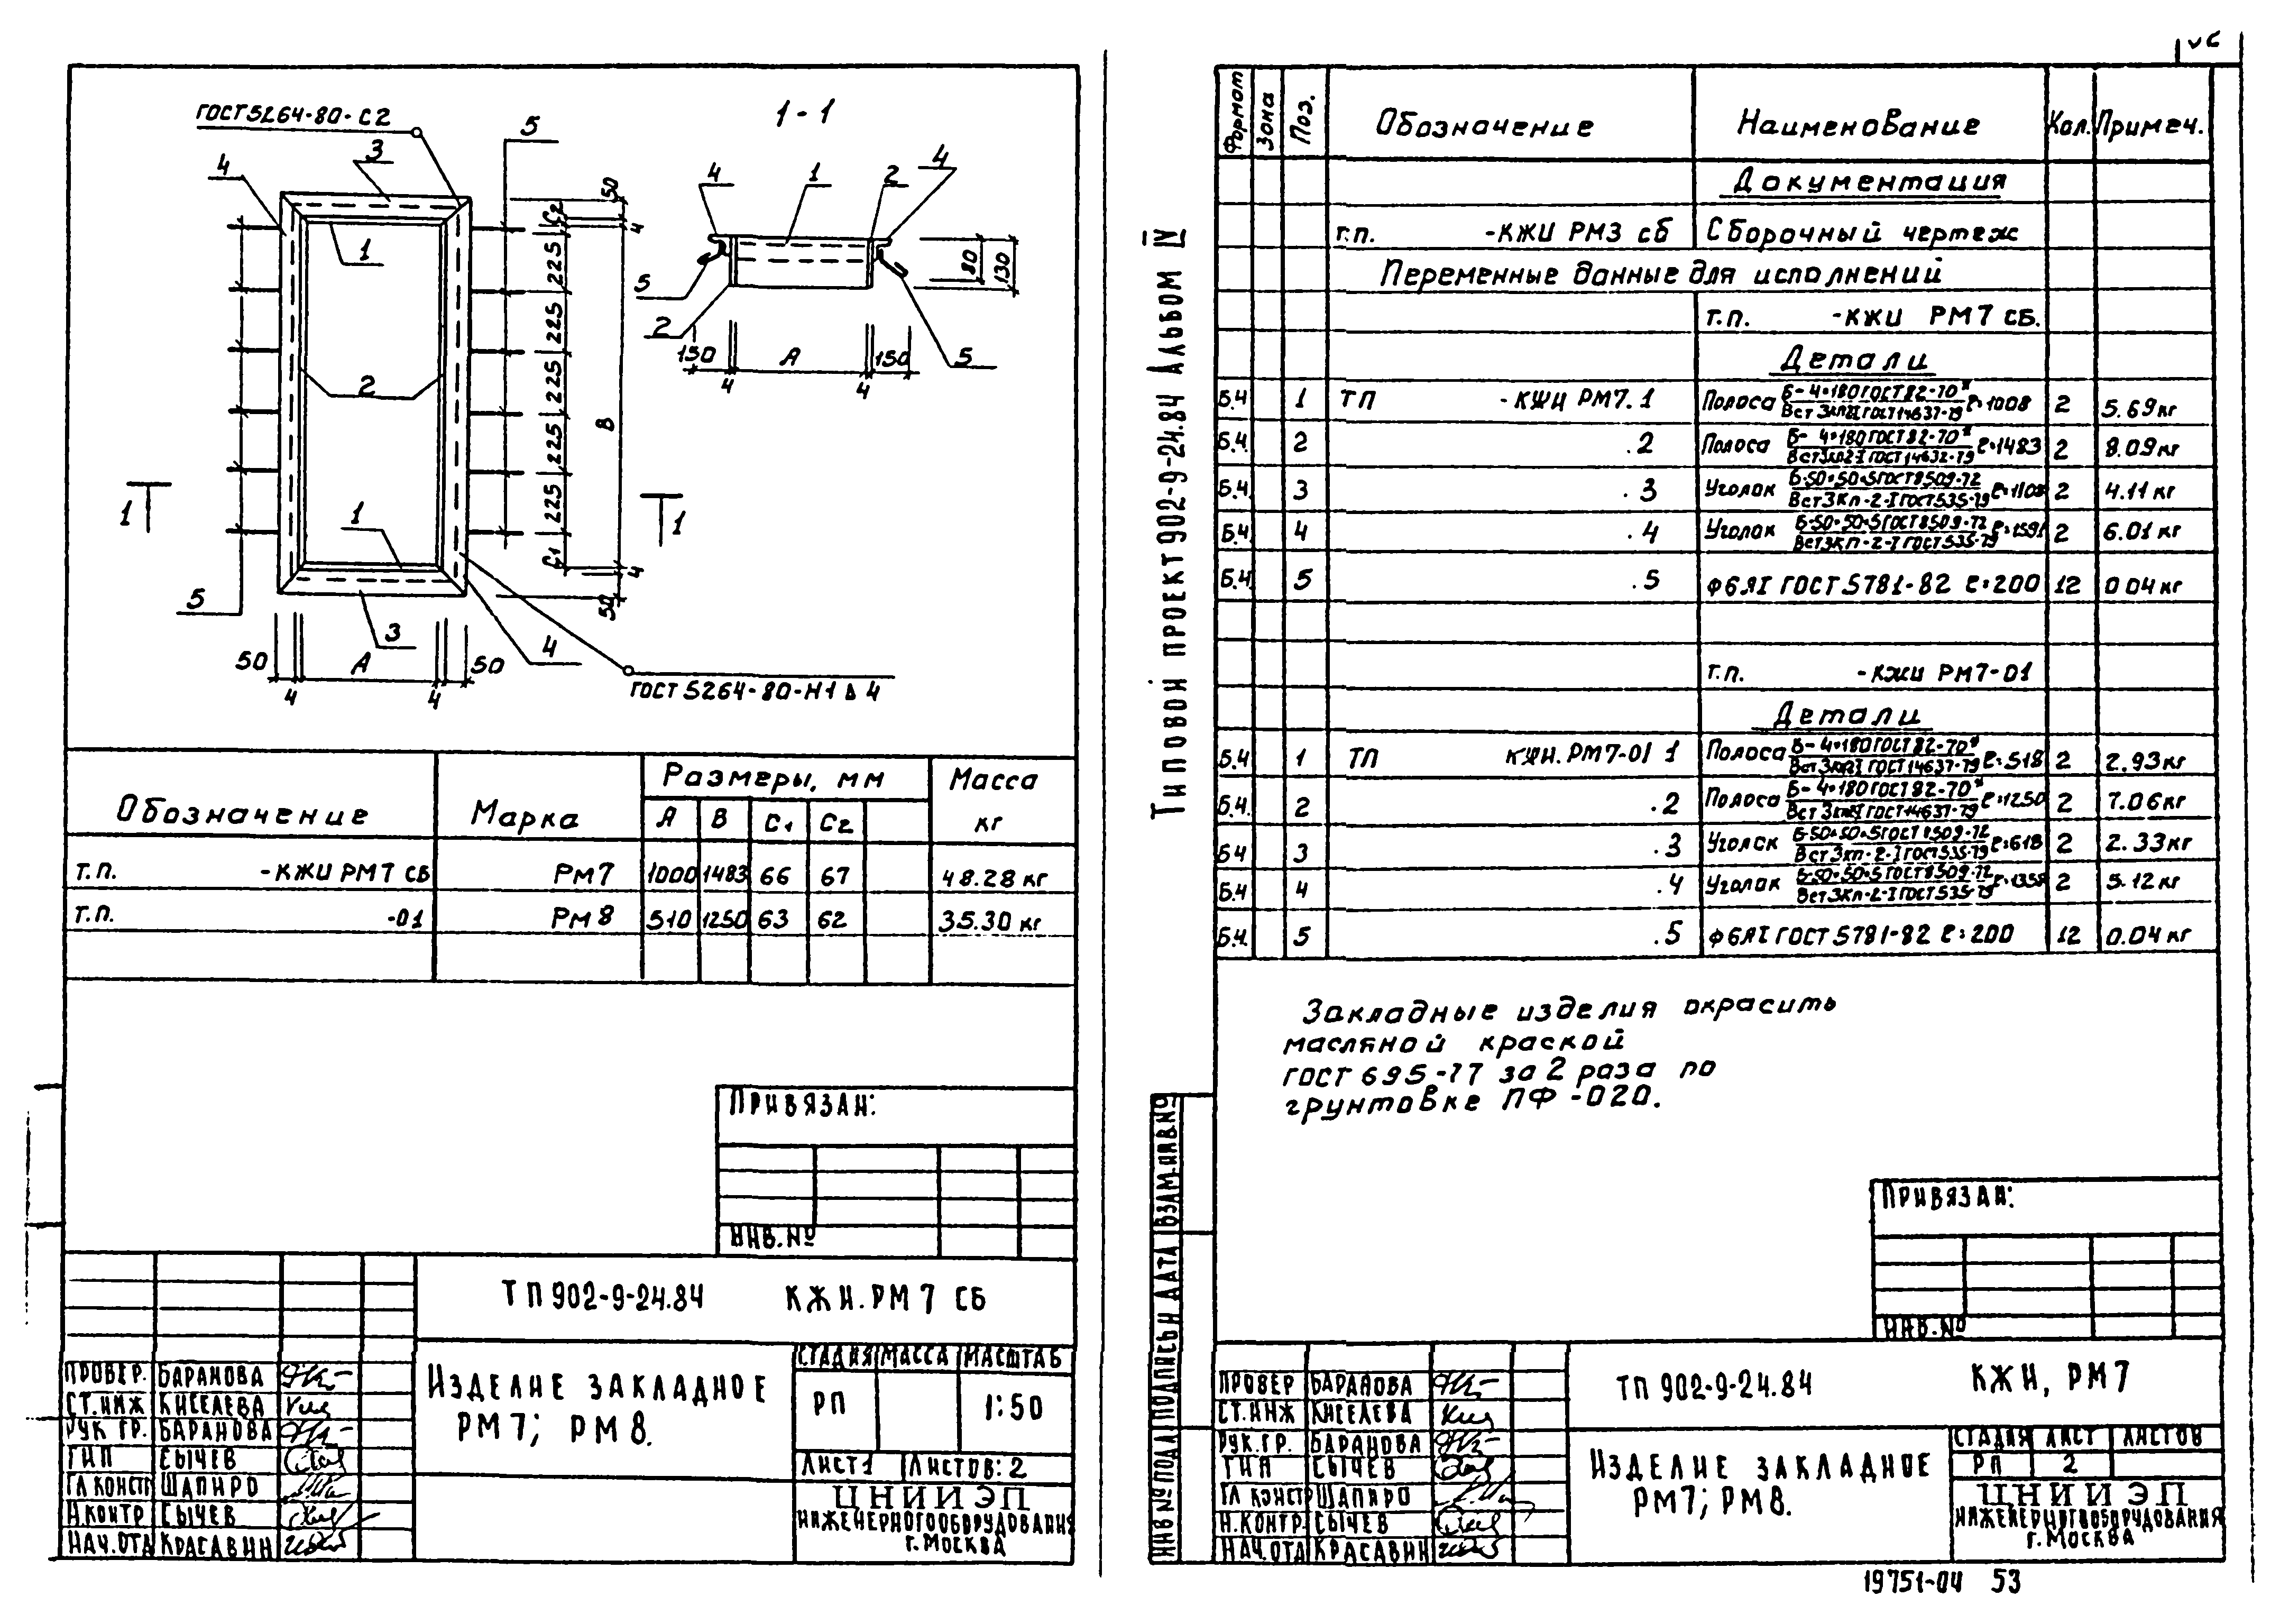 ГОСТ 5264-80-С2
1-1
5
3
4
1
2
4
1
2
4
5
2
5
80
130
150
А
150
4
4
50
С2
4
225
225
225
225
225
В
С1
4
50
1
1
1
2
1
5
3
4
50
А
50
4
4
ГОСТ 5264-80-Н1 ⊿ 4
Обозначение Марка Размеры, мм Масса кг
А В С1 С2
т.п. -КЖИ РМ7 сб РМ7 1000 1483 66 67 48.28 кг
т.п. -01 РМ8 510 1250 63 62 35.30 кг
Привязан:
Инв.№
ТП 902-9-24.84 КЖИ.РМ 7 СБ
Провер. Баранова
Ст.инж Киселева
Рук гр. Баранова
ГИП Сычев
Гл констр Шапиро
Н.контр Сычев
Нач.отд Красавин
Изделие закладное
РМ7; РМ8.
Стадия Масса Масштаб
РП 1:50
Лист 1 Листов: 2
ЦНИИЭП
инженерного оборудования
г. Москва
Типовой проект 902-9-24.84 Альбом IV
Формат Зона Поз. Обозначение Наименование Кол. Примеч.
Документация
т.п. -КЖИ РМ3 сб Сборочный чертеж
Переменные данные для исполнений
т.п. -КЖИ РМ7 СБ.
Детали
Б.4 1 ТП -КЖИ РМ7.1 Полоса Б-4×180 ГОСТ 82-70* / Вст3кп2-I ГОСТ 14637-79 ℓ=1008 2 5.69 кг
Б.4 2 .2 Полоса Б-4×180 ГОСТ 82-70* / Вст3кп2-I ГОСТ 14632-79 ℓ=1483 2 8.09 кг
Б.4 3 .3 Уголок Б-50×50×5 ГОСТ 8509-72 / Вст3кп-2-I ГОСТ 535-79 ℓ=1108 2 4.11 кг
Б.4 4 .4 Уголок Б-50×50×5 ГОСТ 8509-72 / Вст3кп-2-I ГОСТ 535-79 ℓ=1591 2 6.01 кг
Б.4 5 .5 ф6АI ГОСТ 5781-82 ℓ=200 12 0 04 кг
т.п. -КЖИ РМ7-01
Детали
Б.4 1 ТП КЖИ.РМ7-01 1 Полоса Б-4×180 ГОСТ 82-70* / Вст3кп2-I ГОСТ 14637-79 ℓ=518 2 2.93 кг
Б.4. 2 .2 Полоса Б-4×180 ГОСТ 82-70* / Вст3кп2-I ГОСТ 14637-79 ℓ=1250 2 7.06 кг
Б4 3 .3 Уголок Б-50×50×5 ГОСТ 8509-72 / Вст3кп-2-I ГОСТ 535-79 ℓ=618 2 2.33 кг
Б.4 4 .4 Уголок Б-50×50×5 ГОСТ 8509-72 / Вст3кп-2-I ГОСТ 535-79 ℓ=1358 2 5.12 кг
Б.4. 5 .5 ф6АI ГОСТ 5781-82 ℓ=200 12 0.04 кг
Закладные изделия окрасить
масляной краской
ГОСТ 695-77 за 2 раза по
грунтовке ПФ-020.
Привязан:
Инв.№
Инв № подл Подпись и дата Взам.инв№
ТП 902-9-24.84 КЖИ, РМ7
Провер Баранова
Ст.инж Киселева
Рук.гр. Баранова
ГИП Сычев
Гл констр Шапиро
Н.контр. Сычев
Нач.отд Красавин
Изделие закладное
РМ7; РМ8.
Стадия Лист Листов
РП 2
ЦНИИЭП
инженерного оборудования
г. Москва
19751-04 53